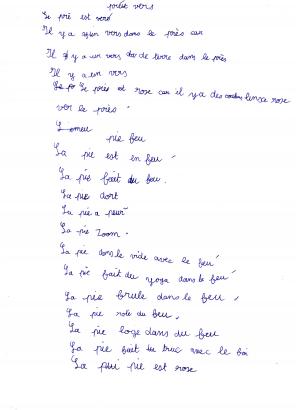 vers
Le prè est vers
Il y a un vers dans le près car
Il y a un vers de terre dans le près
Il y a un vers
Le près est rose car il y a des rose
ver le près
pie feu
La pie est en feu
La pie fait du feu.
La pie dort
La pie a peur
La pie zoom.
La pie dans le vide avec le feu
La pie fait du yoga dans le feu
La pie brule dans le feu
La pie rote du feu.
La pie loge dans du feu
La pie fait du truc avec le
La pie est rose